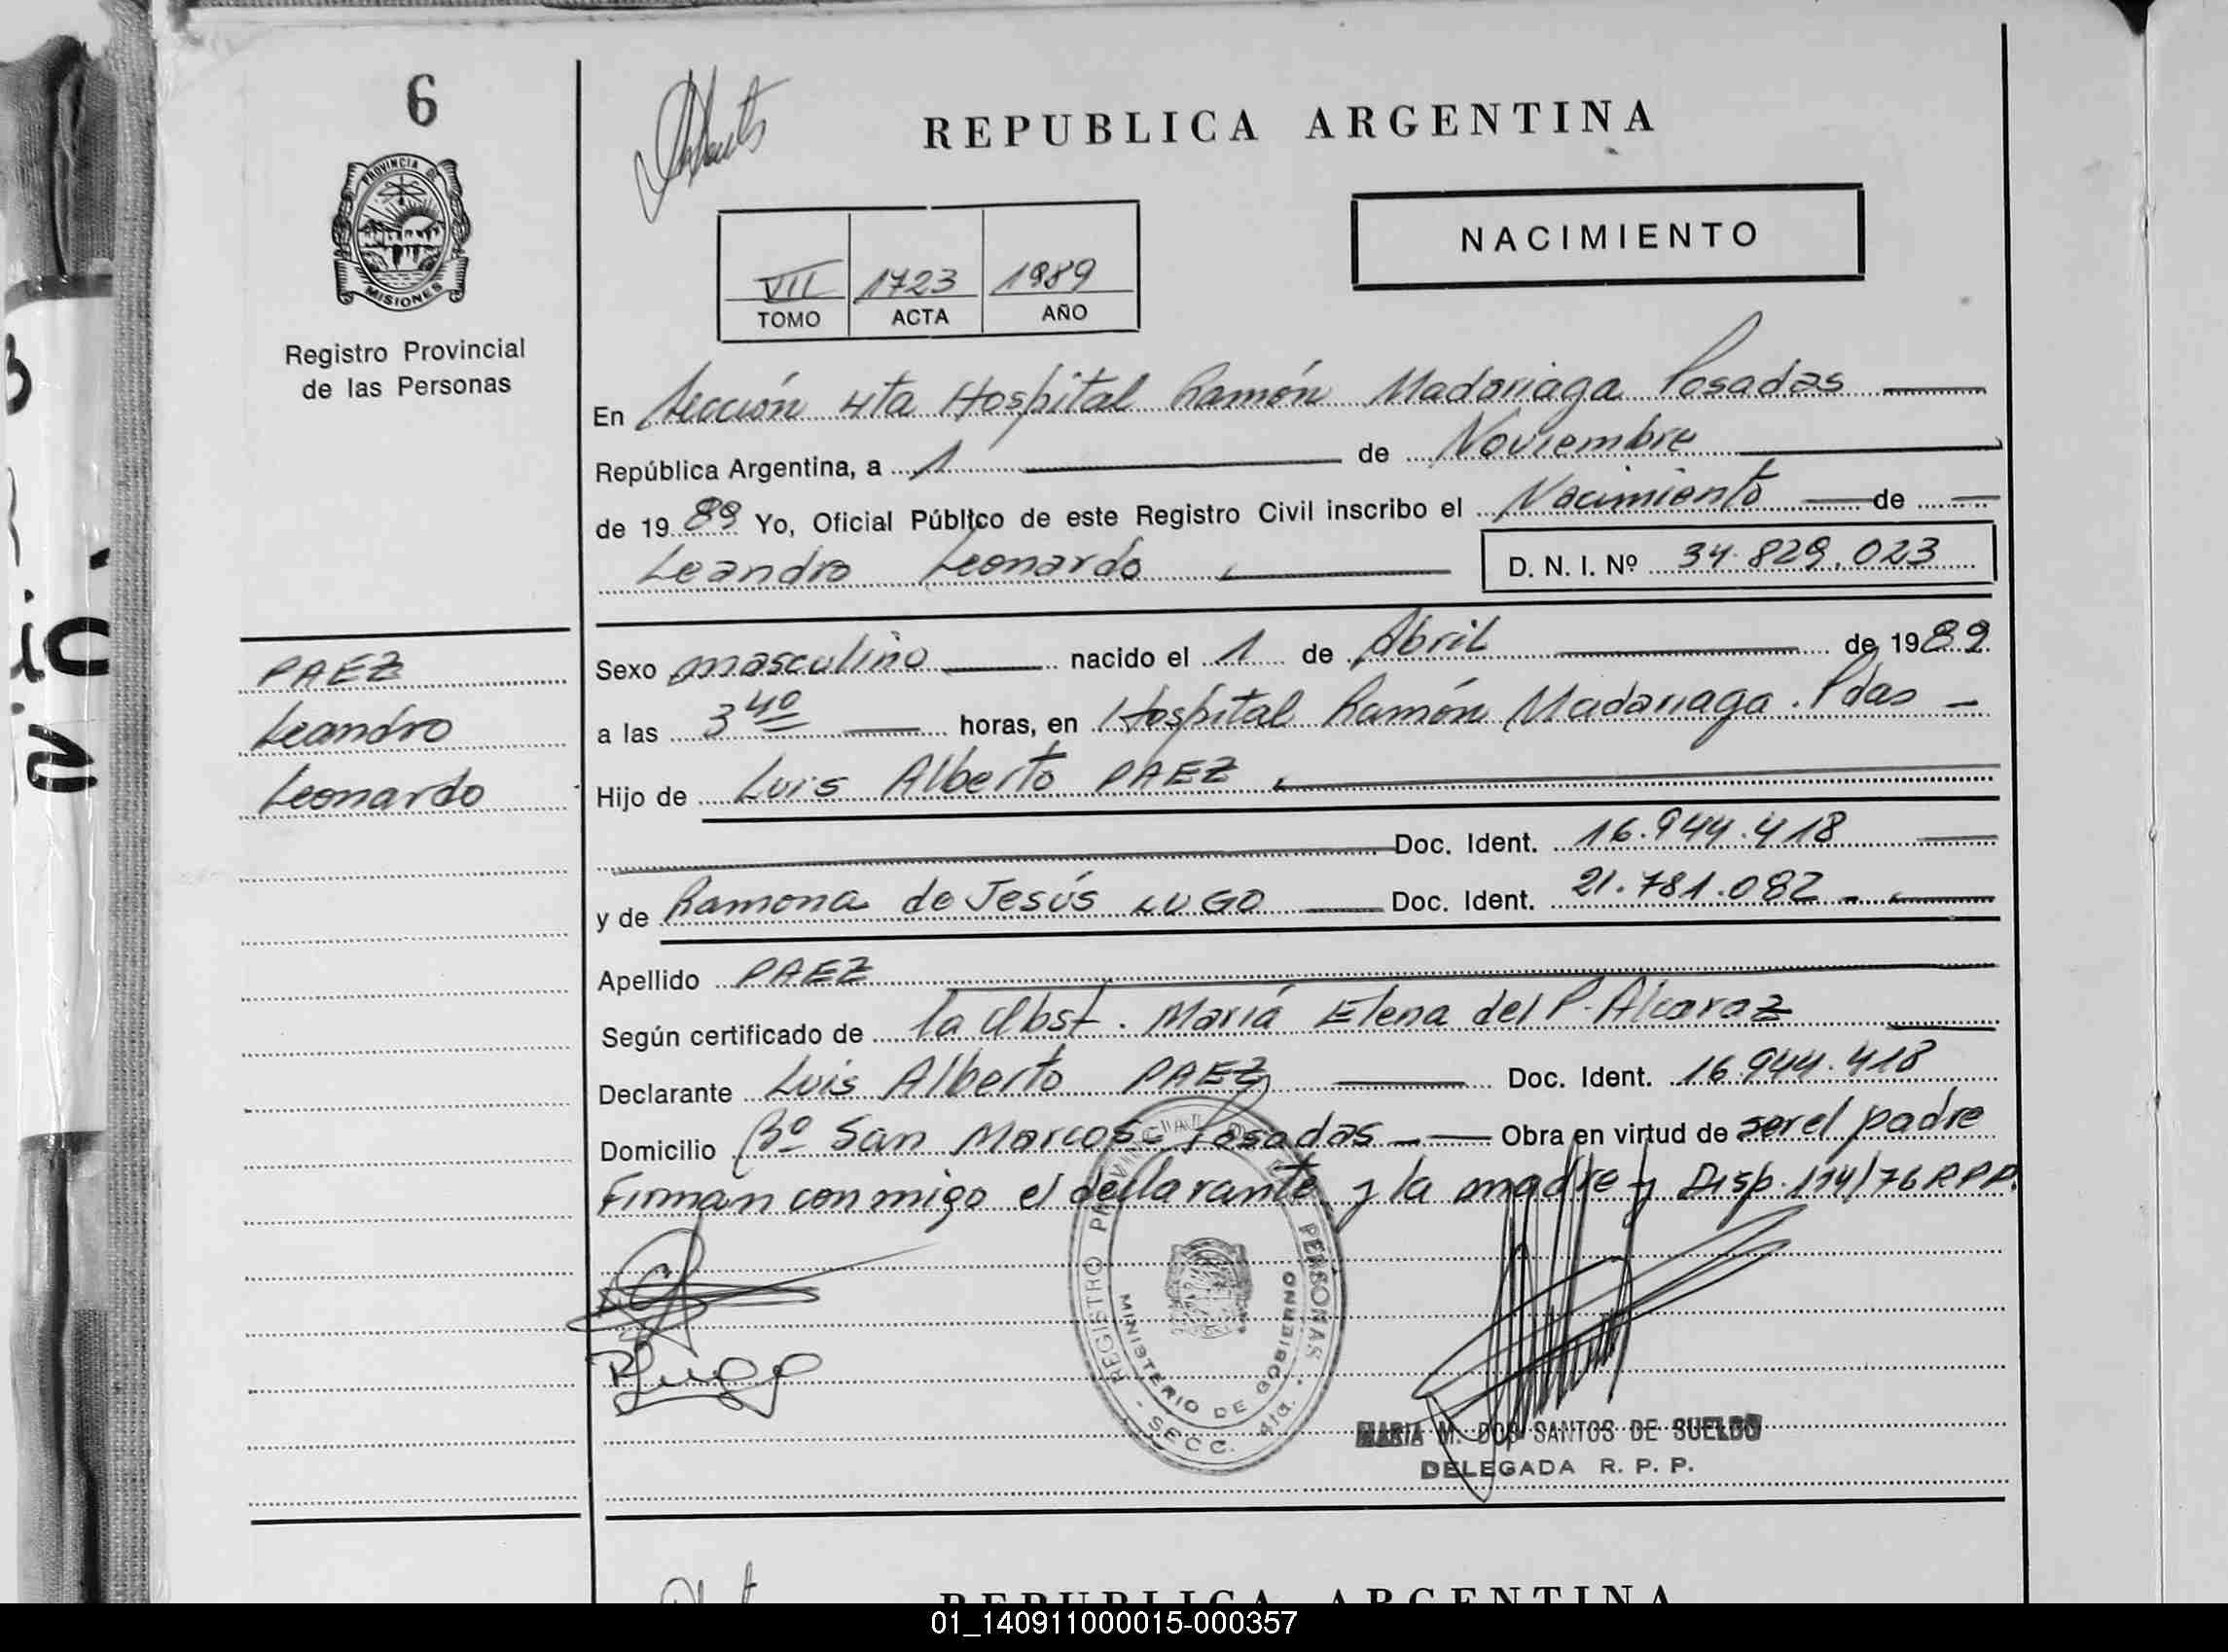 6
PROVINCIA
MISIONES
Registro Provincial
de las Personas
REPUBLICA ARGENTINA
NACIMIENTO
VII 1723 1989
TOMO ACTA AÑO
En Sección 4ta Hospital Ramón Madariaga Posadas
República Argentina, a 1 de Noviembre
de 1989 Yo, Oficial Público de este Registro Civil inscribo el Nacimiento de
Leandro Leonardo D. N. I. Nº 34.829.023
PAEZ
Leandro
Leonardo
Sexo masculino nacido el 1 de Abril de 1989
a las 3 40 horas, en Hospital Ramón Madariaga. Pdas
Hijo de Luis Alberto PAEZ
Doc. Ident. 16.944.418
y de Ramona de Jesús LUGO Doc. Ident. 21.781.082
Apellido PAEZ
Según certificado de la Obst. María Elena del P. Alcaraz
Declarante Luis Alberto PAEZ Doc. Ident. 16.944.418
Domicilio Bº San Marcos - Posadas Obra en virtud de ser el padre
Firman conmigo el declarante y la madre y Disp. 114/76 RPP.
REGISTRO PROVINCIAL DE LAS PERSONAS
MINISTERIO DE GOBIERNO
SECC. 4ta.
RLugo
MARIA M. DOS SANTOS DE SUELDO
DELEGADA R. P. P.
REPUBLICA ARGENTINA
01_140911000015-000357